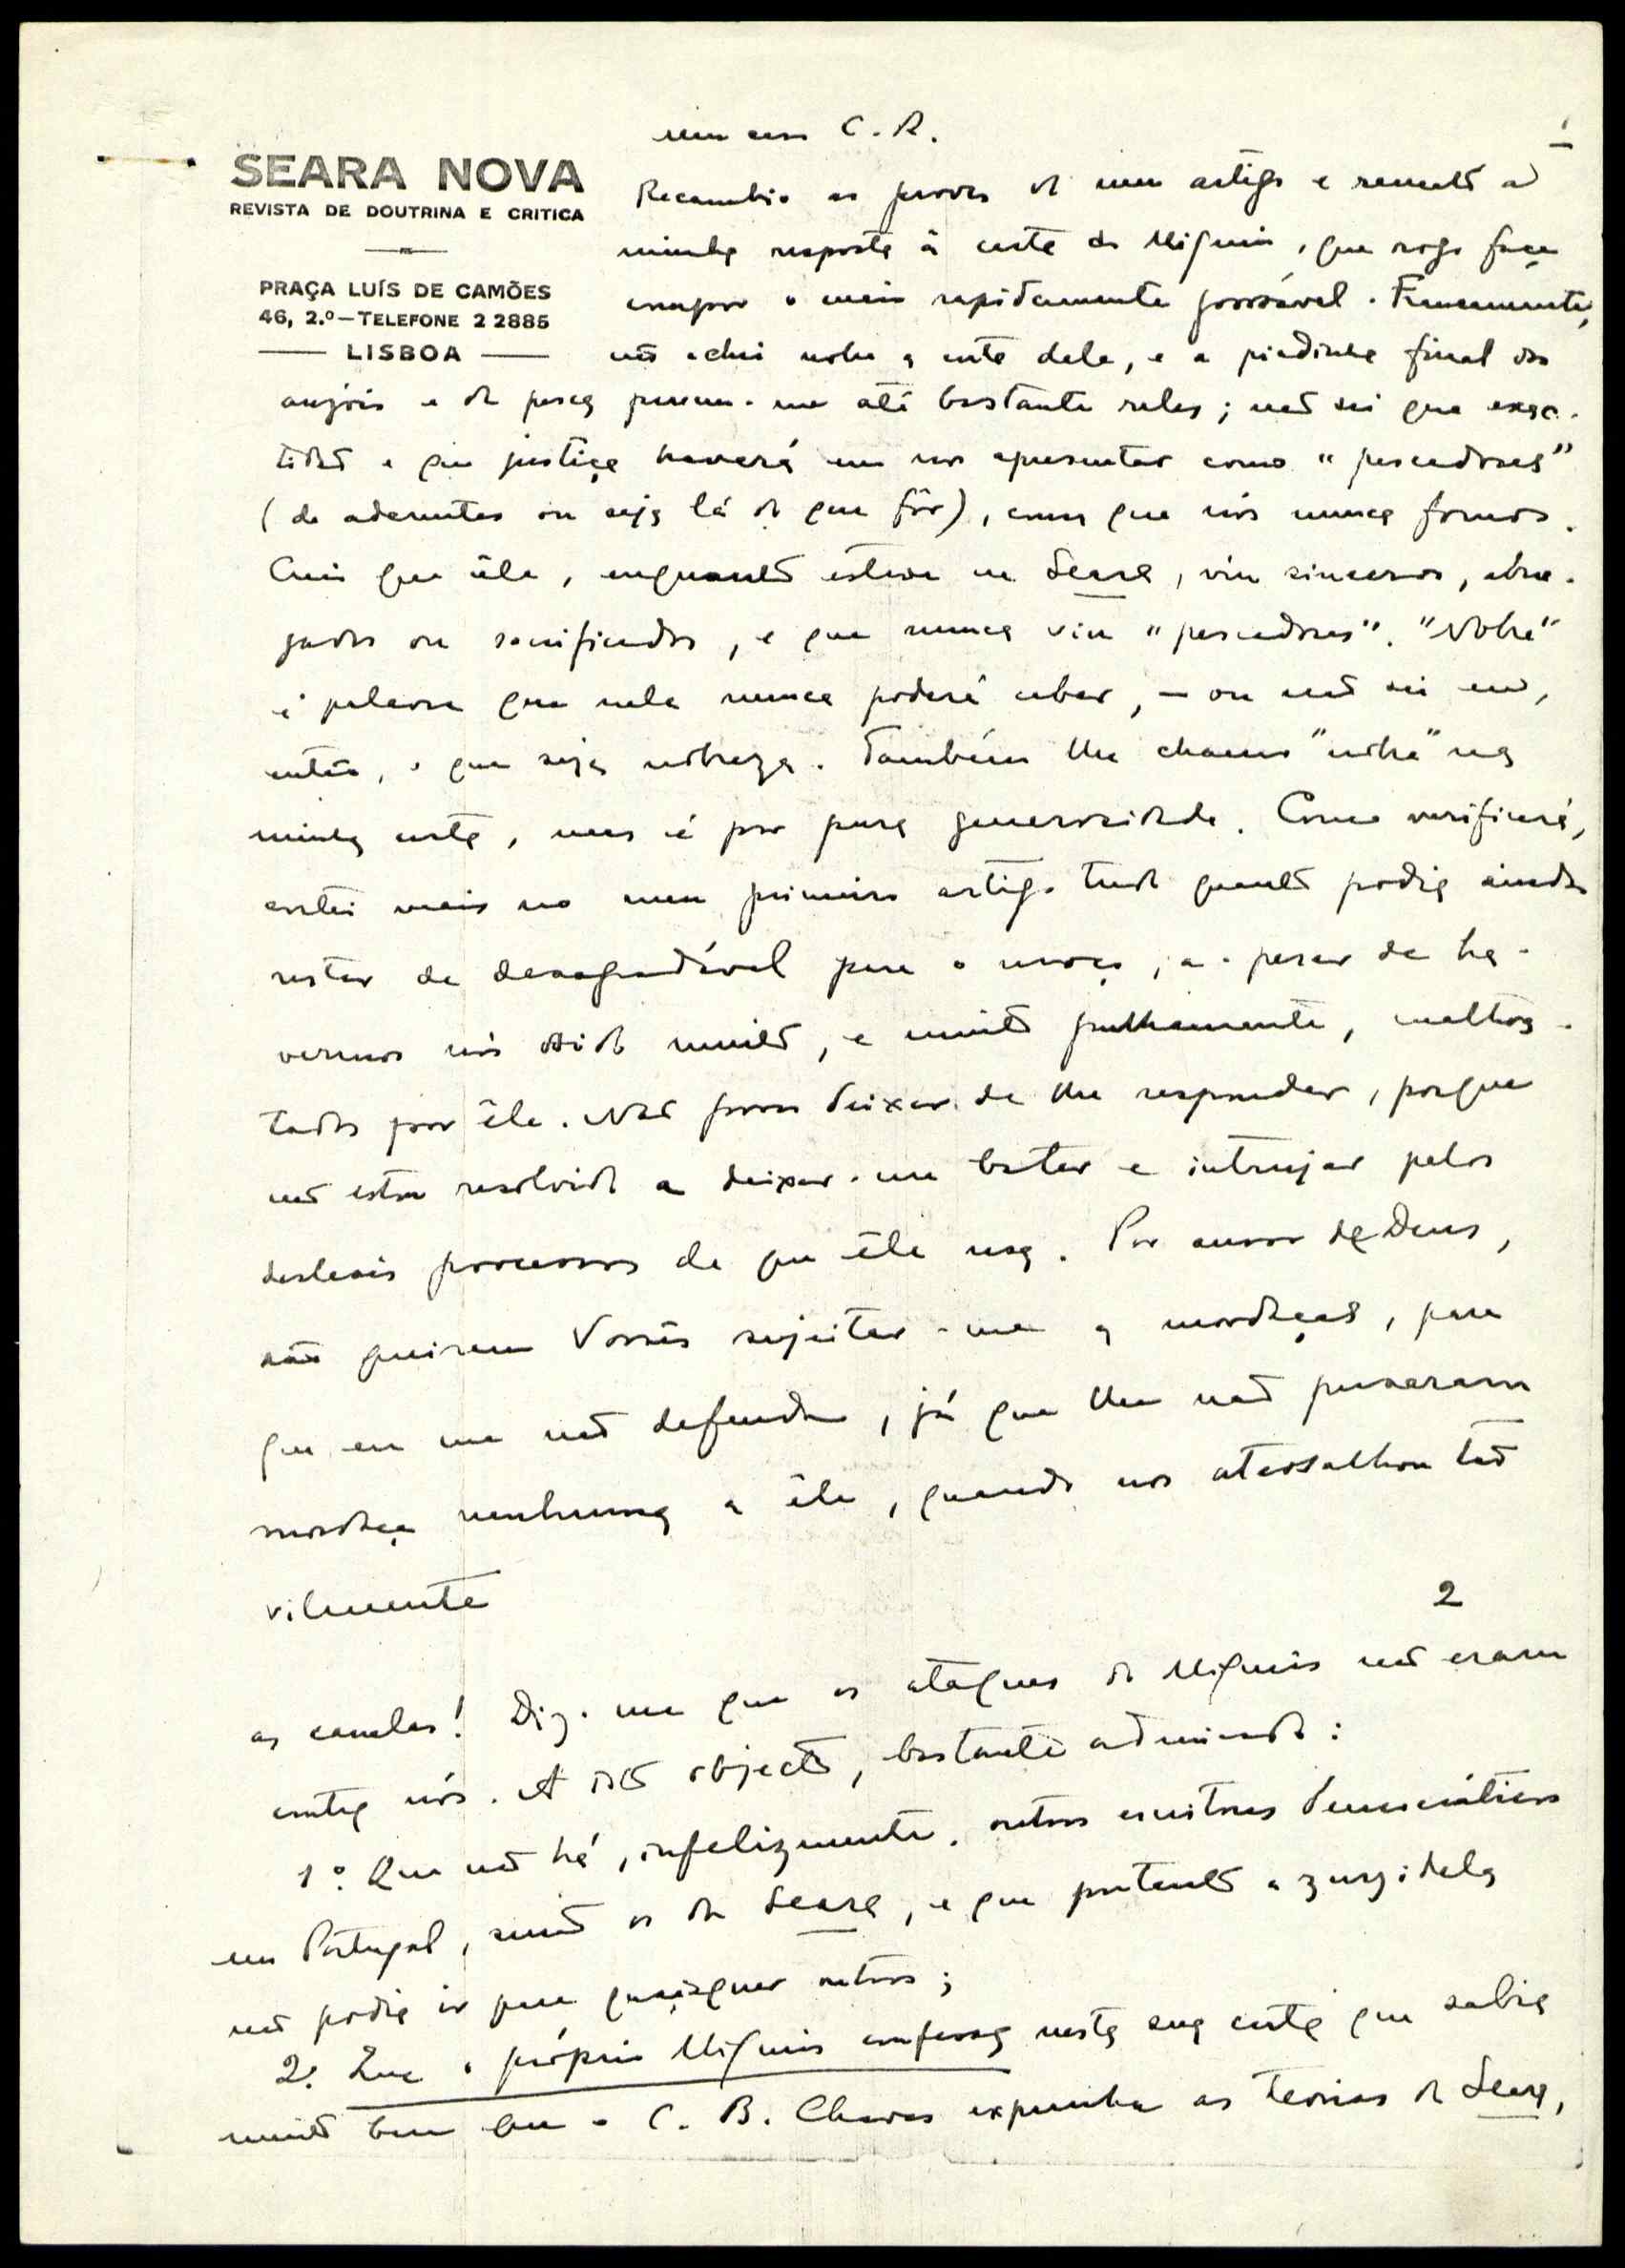 SEARA NOVA
REVISTA DE DOUTRINA E CRITICA
PRAÇA LUÍS DE CAMÕES
46, 2.º—TELEFONE 2 2885
LISBOA
meu caro C. R.
1
Recambio as provas do meu artigo e remeto a
minha resposta à carta do Migueis, que rogo faça
compor o mais rapidamente possível. Francamente,
não achei nobre a carta dele, e a piadinha final dos
anzois e da pesca parece-me até bastante reles; não sei que exac-
tidão e que justiça haverá em nos apresentar como "pescadores"
(de aderentes ou seja lá do que fôr), cousa que nós nunca fomos.
Creio que êle, enquanto esteve na Seara, viu sinceros, abne-
gados ou sacrificados, e que nunca viu "pescadores". "Nobre"
é palavra que nele nunca poderá caber, — ou não sei eu,
então, o que seja nobreza. Também lhe chamo "nobre" na
minha carta, mas é por pura generosidade. Como verificará,
cortei mais no meu primeiro artigo tudo quanto podia ainda
restar de desagradável para o moço, a-pesar de ha-
vermos nós sido muito, e muito pulhamente, maltra-
tados por êle. Não posso deixar de lhe responder, porque
não estou resolvido a deixar-me bater e intrujar pelos
desleais processos de que êle usa. Por amor de Deus,
não queiram Vossês sujeitar-me a mordaças, para
que eu me não defenda, já que lhe não puseram
mordaça nenhuma a êle, quando nos atassalhou tão
vilmente
2
as canelas! Diz-me que os ataques do Migueis não eram
contra nós. A isto objecto, bastante admirado:
1º. Que não há, infelizmente, outros escritores democráticos
em Portugal, senão os da Seara, e que portanto a zurzidela
não podia ir para quaisquer outros;
2º. Que o próprio Migueis confessa nesta sua carta que sabia
muito bem que o C. B. Chaves expunha as teorias da Seara,